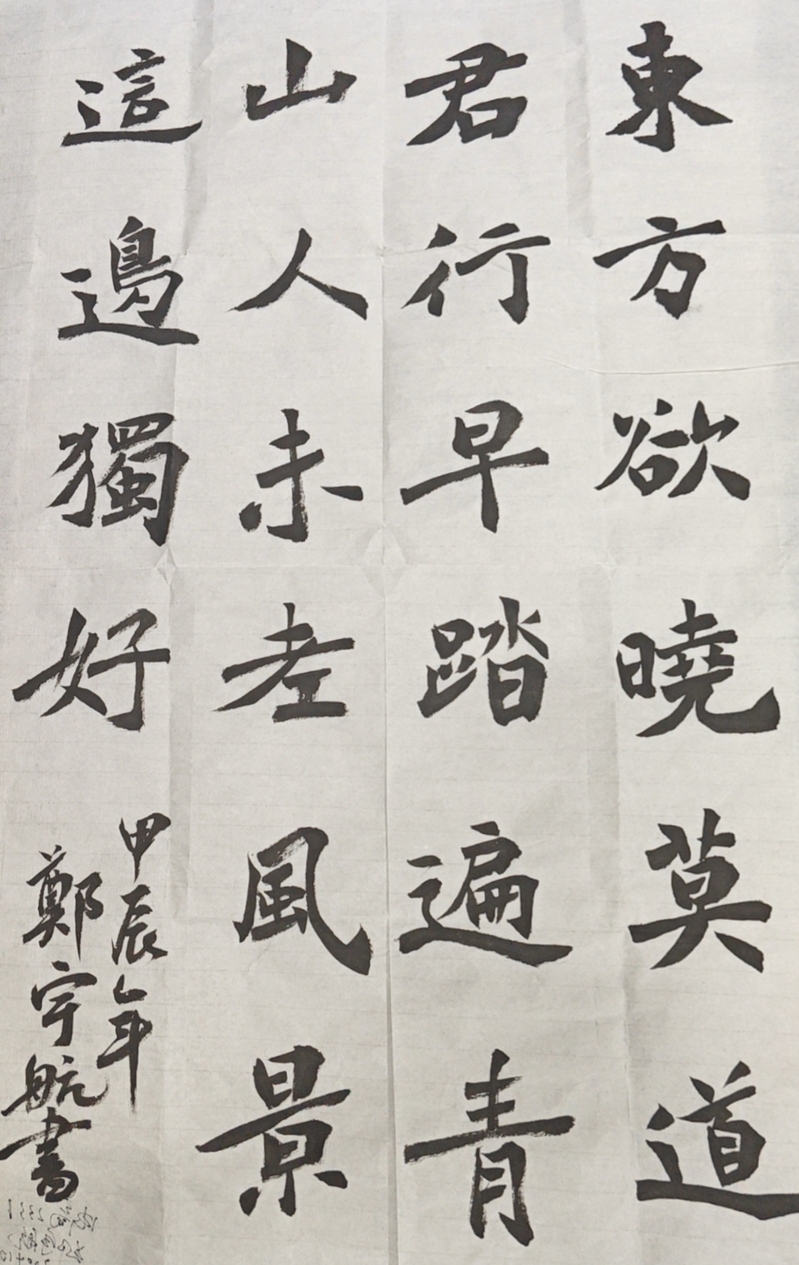 東方欲曉莫道
君行早踏遍青
山人未老風景
這邊獨好
甲辰年
鄭宇航書